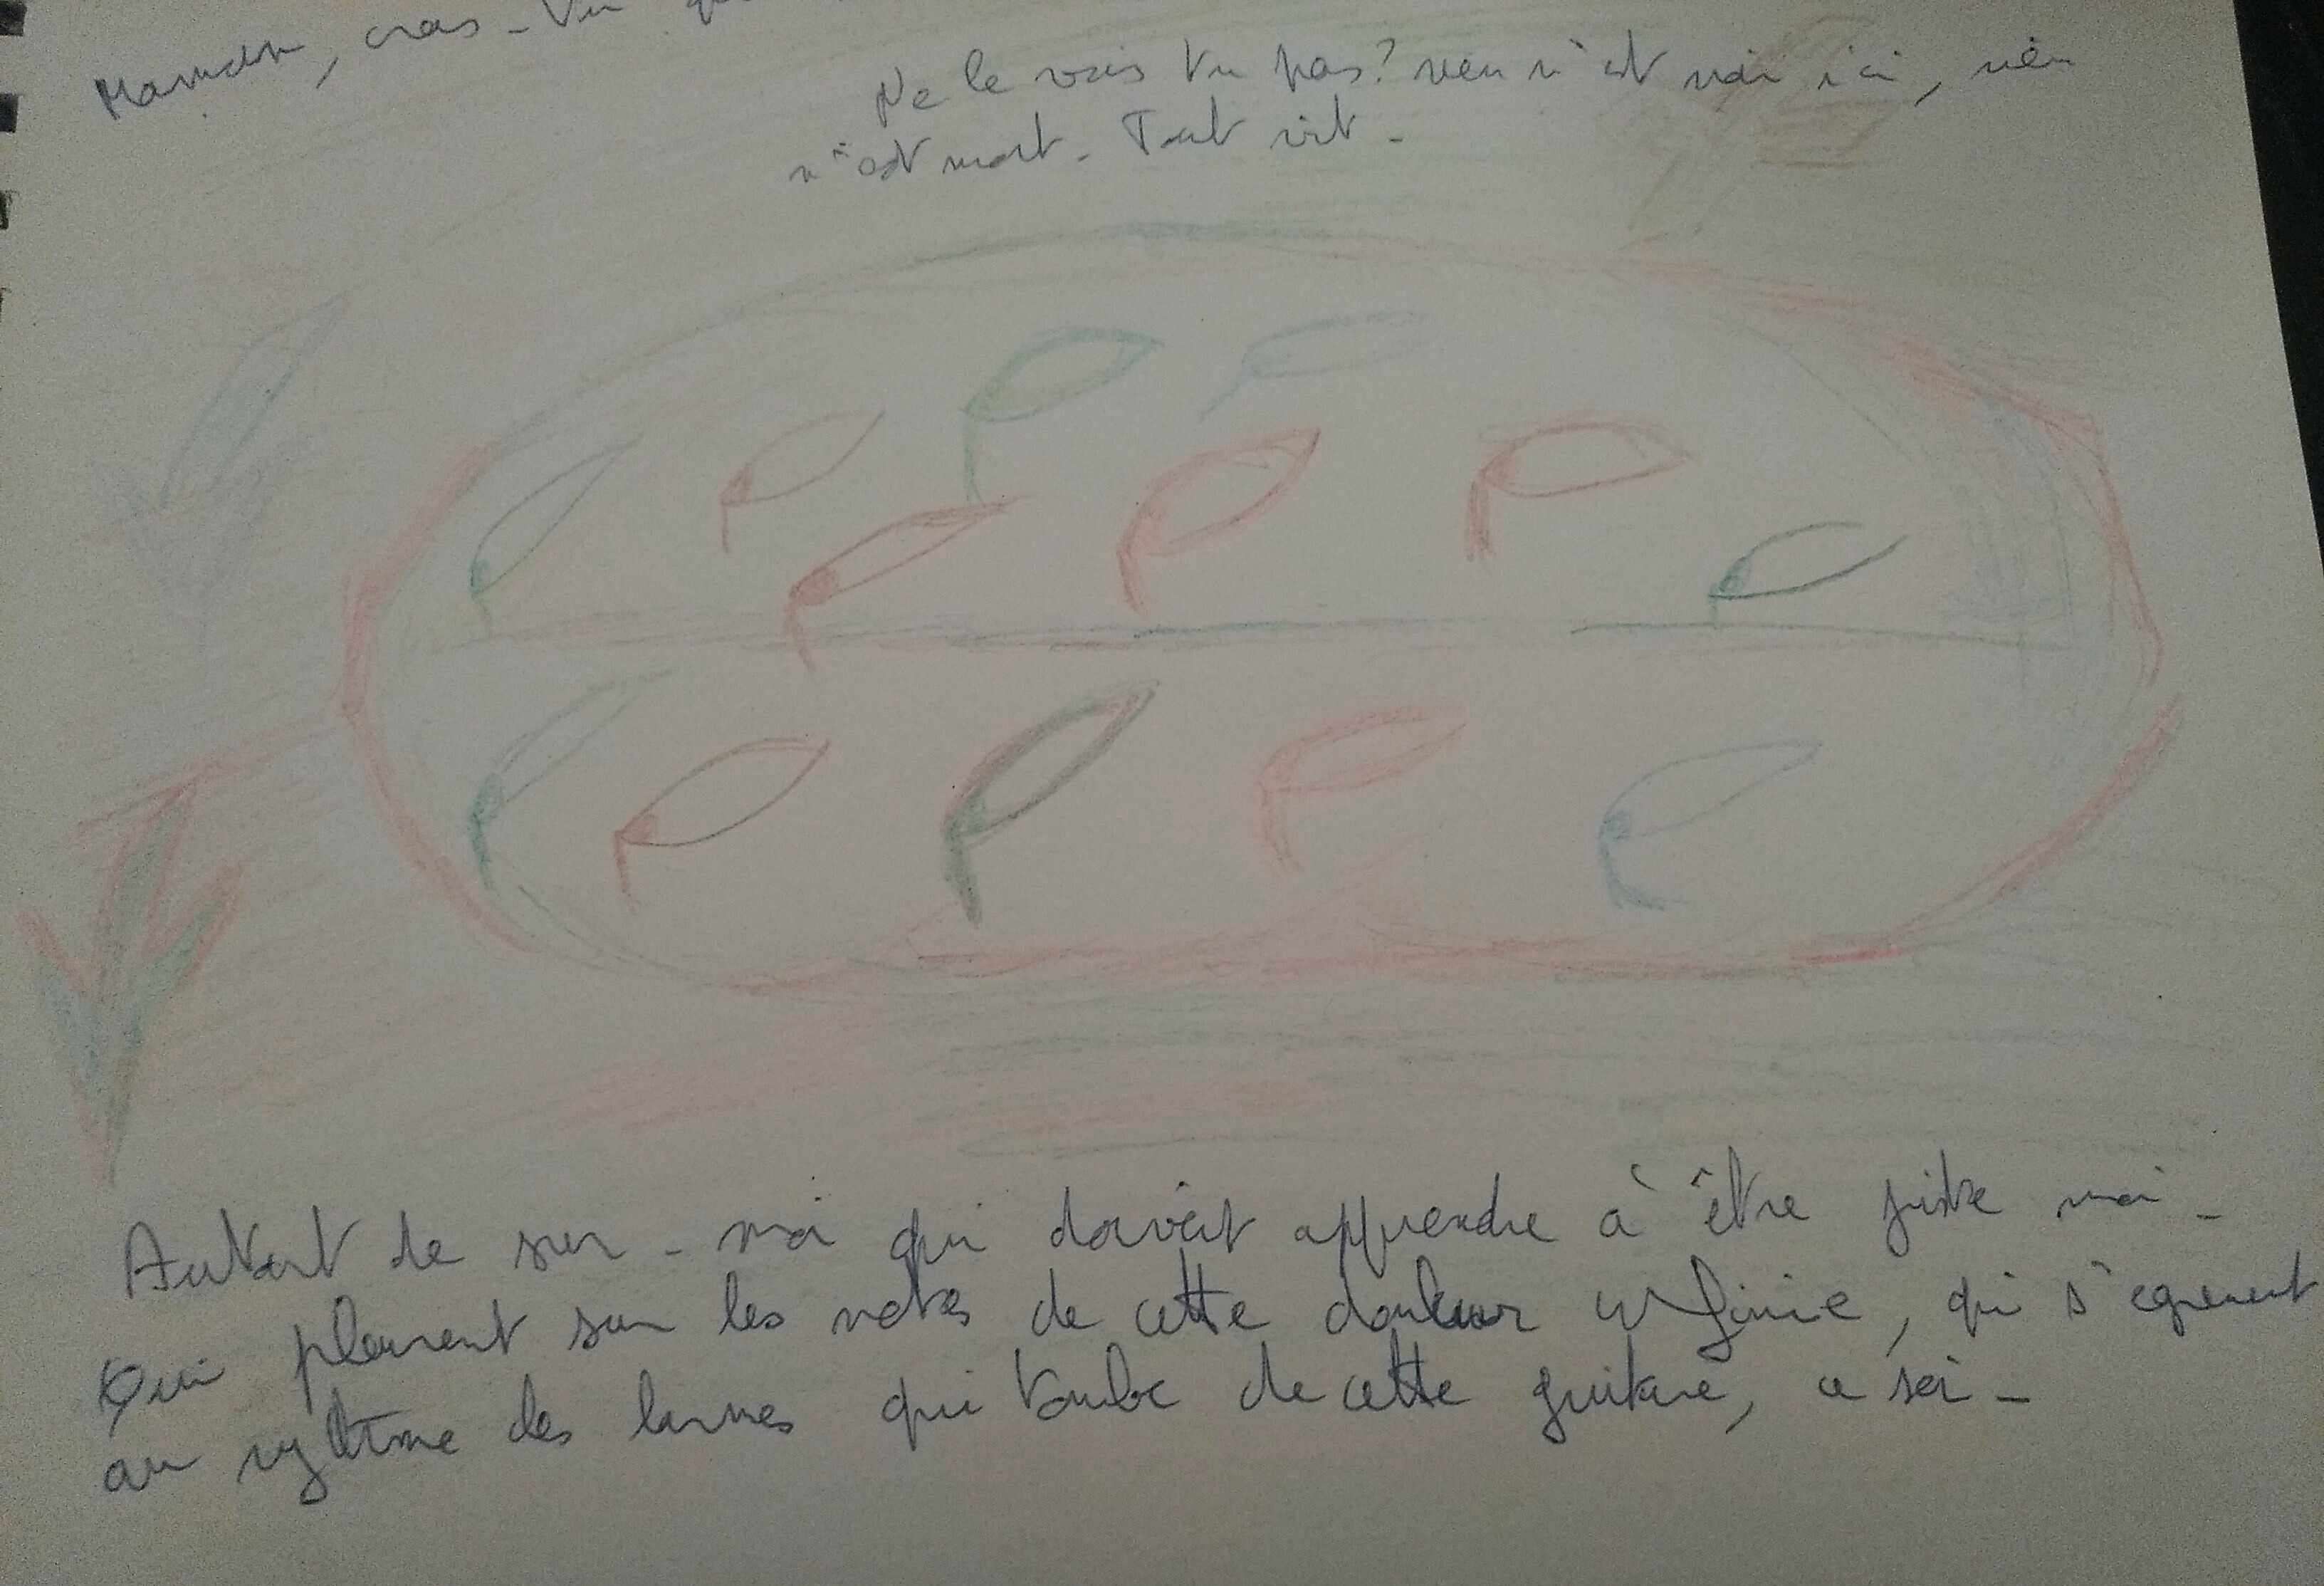 Maman, crois-tu que
Ne le vois tu pas? rien n'est noir ici, rien
n'est mort. Tout vit.
Autant de sur-moi qui doivent apprendre à être juste moi.
Qui pleurent sur les notes de cette douleur infinie, qui s'egrenent
au rythme des larmes qui tombe de cette guitare, ce soir.